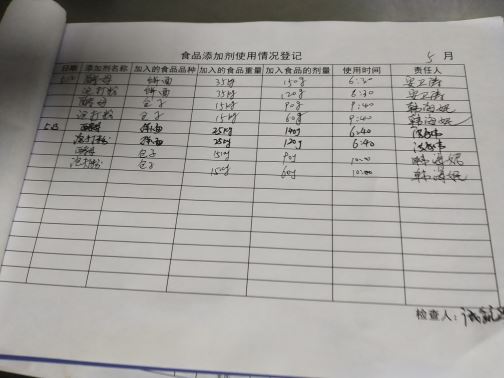 食品添加剂使用情况登记
5 月
日期 添加剂名称 加入的食品品种 加入的食品重量 加入食品的剂量 使用时间 责任人
酵母 饼面 25kg 150g 6:30
泡打粉 饼面 25kg 120g 6:30
酵母 包子 15kg 90g 9:40 韩海妮
泡打粉 包子 15kg 60g 9:40 韩海妮
酵母 饼面 25kg 140g 6:40
泡打粉 饼面 25kg 120g 6:40
酵母 包子 15kg 90g 10:00 韩海妮
泡打粉 包子 15kg 60g 10:00 韩海妮
检查人：